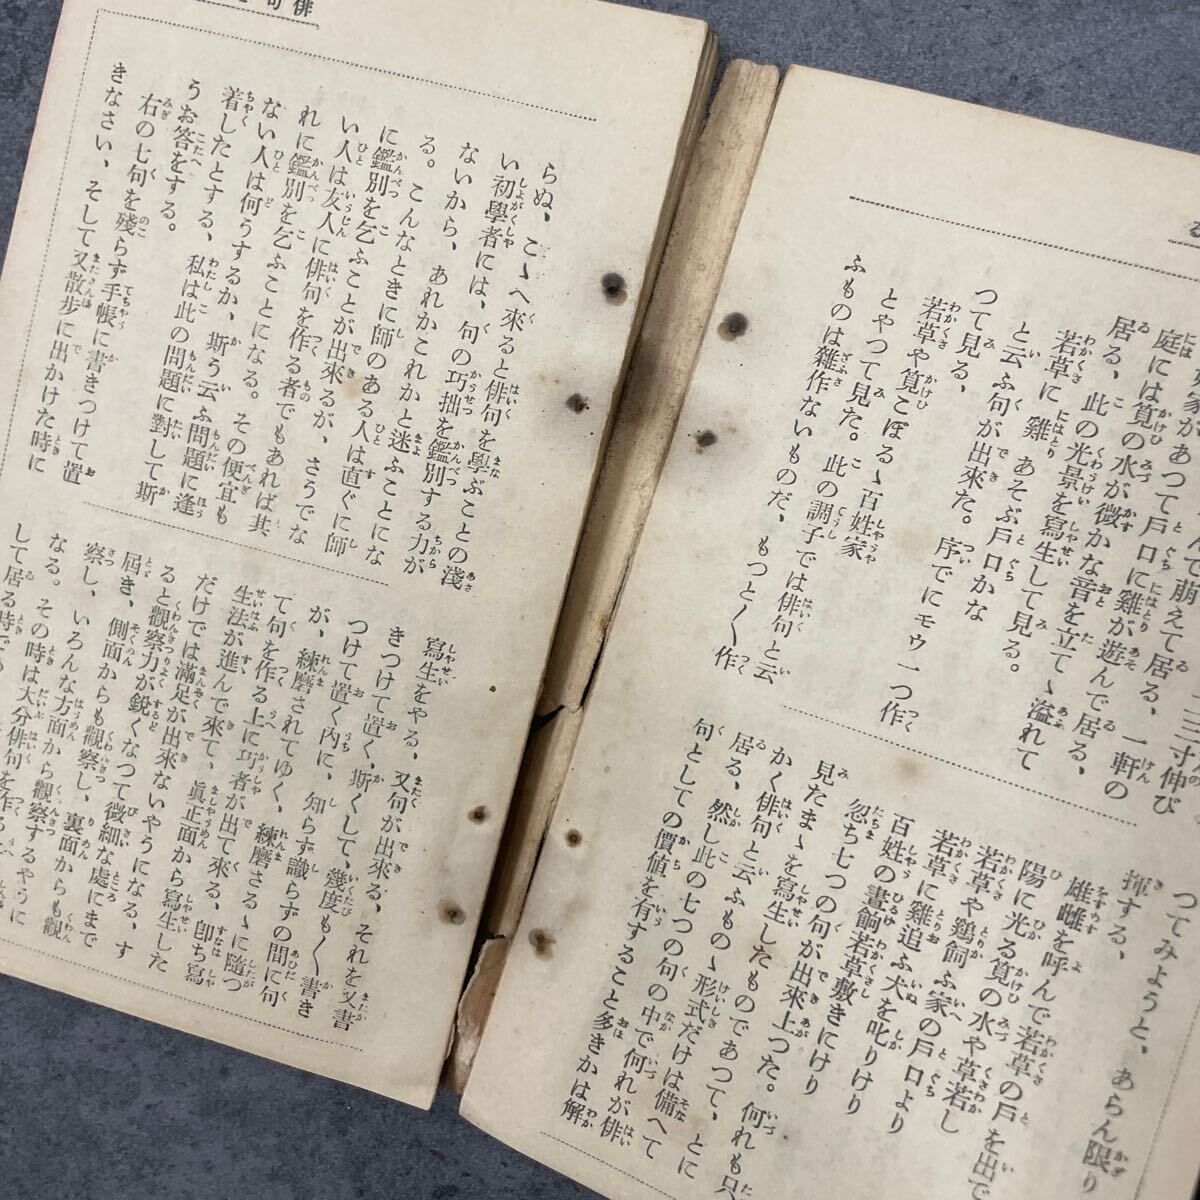 んで萌えて居る、一軒の
庭には筧の水が微かな音を立てゝ溢れて
居る、此の光景を寫生して見る。
若草に鷄あそぶ戸口かな
と云ふ句が出來た。序でにモウ一つ作
つて見る、
若草や筧こぼるゝ百姓家
とやつて見た。此の調子では俳句と云
ふものは雜作ないものだ、もつと〱作
つてみようと、あらん限り
揮する、
雄雌を呼んで若草の戸を出で
陽に光る筧の水や草若し
若草や鷄飼ふ家の戸口より
若草に鷄追ふ犬を叱りけり
百姓の晝餉若草敷きにけり
忽ち七つの句が出來上つた。何れも只
見たまゝを寫生したものであつて、とに
かく俳句と云ふものゝ形式だけは備へて
居る、然し此の七つの句の中で何れが俳
句としての價値を有すること多きかは解
らぬ、こゝへ來ると俳句を學ぶことの淺
い初學者には、句の巧拙を鑑別する力が
ないから、あれかこれかと迷ふことにな
る。こんなときに師のある人は直ぐに師
に鑑別を乞ふことが出來るが、さうでな
い人は友人に俳句を作る者でもあれば其
れに鑑別を乞ふことになる。その便宜も
ない人は何うするか、斯う云ふ問題に逢
着したとする、私は此の問題に對して斯
うお答をする。
右の七句を殘らず手帳に書きつけて置
きなさい、そして又散歩に出かけた時に
寫生をやる、又句が出來る、それを又書
きつけて置く、斯くして、幾度も〱書き
つけて置く内に、知らず識らずの間に句
が、練磨されてゆく、練磨さるゝに隨つ
て句を作る上に巧者が出て來る、即ち寫
生法が進んで來て、眞正面から寫生した
だけでは滿足が出來ないやうになる、す
ると觀察力が鋭くなつて微細な處にまで
屆き、側面からも觀察し、裏面からも觀
察し、いろんな方面から觀察するやうに
なる。その時は大分俳句を作る
して居る時で